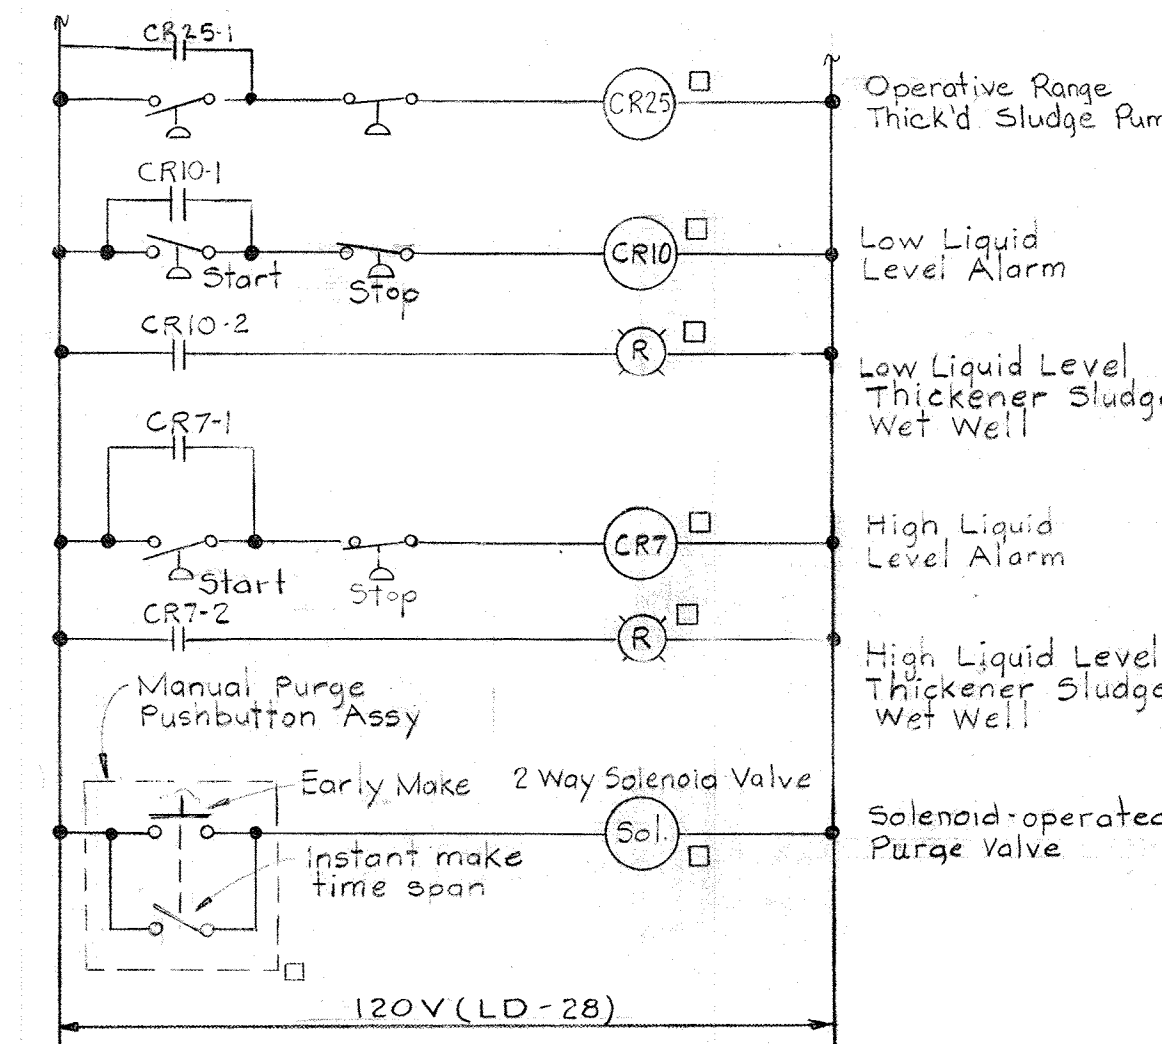 CR25-1
CR25
Operative Range
Thick'd Sludge
CR10-1
Start
Stop
CR10
Low Liquid
Level Alarm
CR10-2
R
Low Liquid Level
Thickener Sludge
Wet Well
CR7-1
Start
Stop
CR7
High Liquid
Level Alarm
CR7-2
R
High Liquid Level
Thickener Sludge
Wet Well
Manual Purge
Pushbutton Assy
Early Make
2 Way Solenoid Valve
Sol.
Solenoid-operated
Purge Valve
Instant make
time span
120V (LD-28)